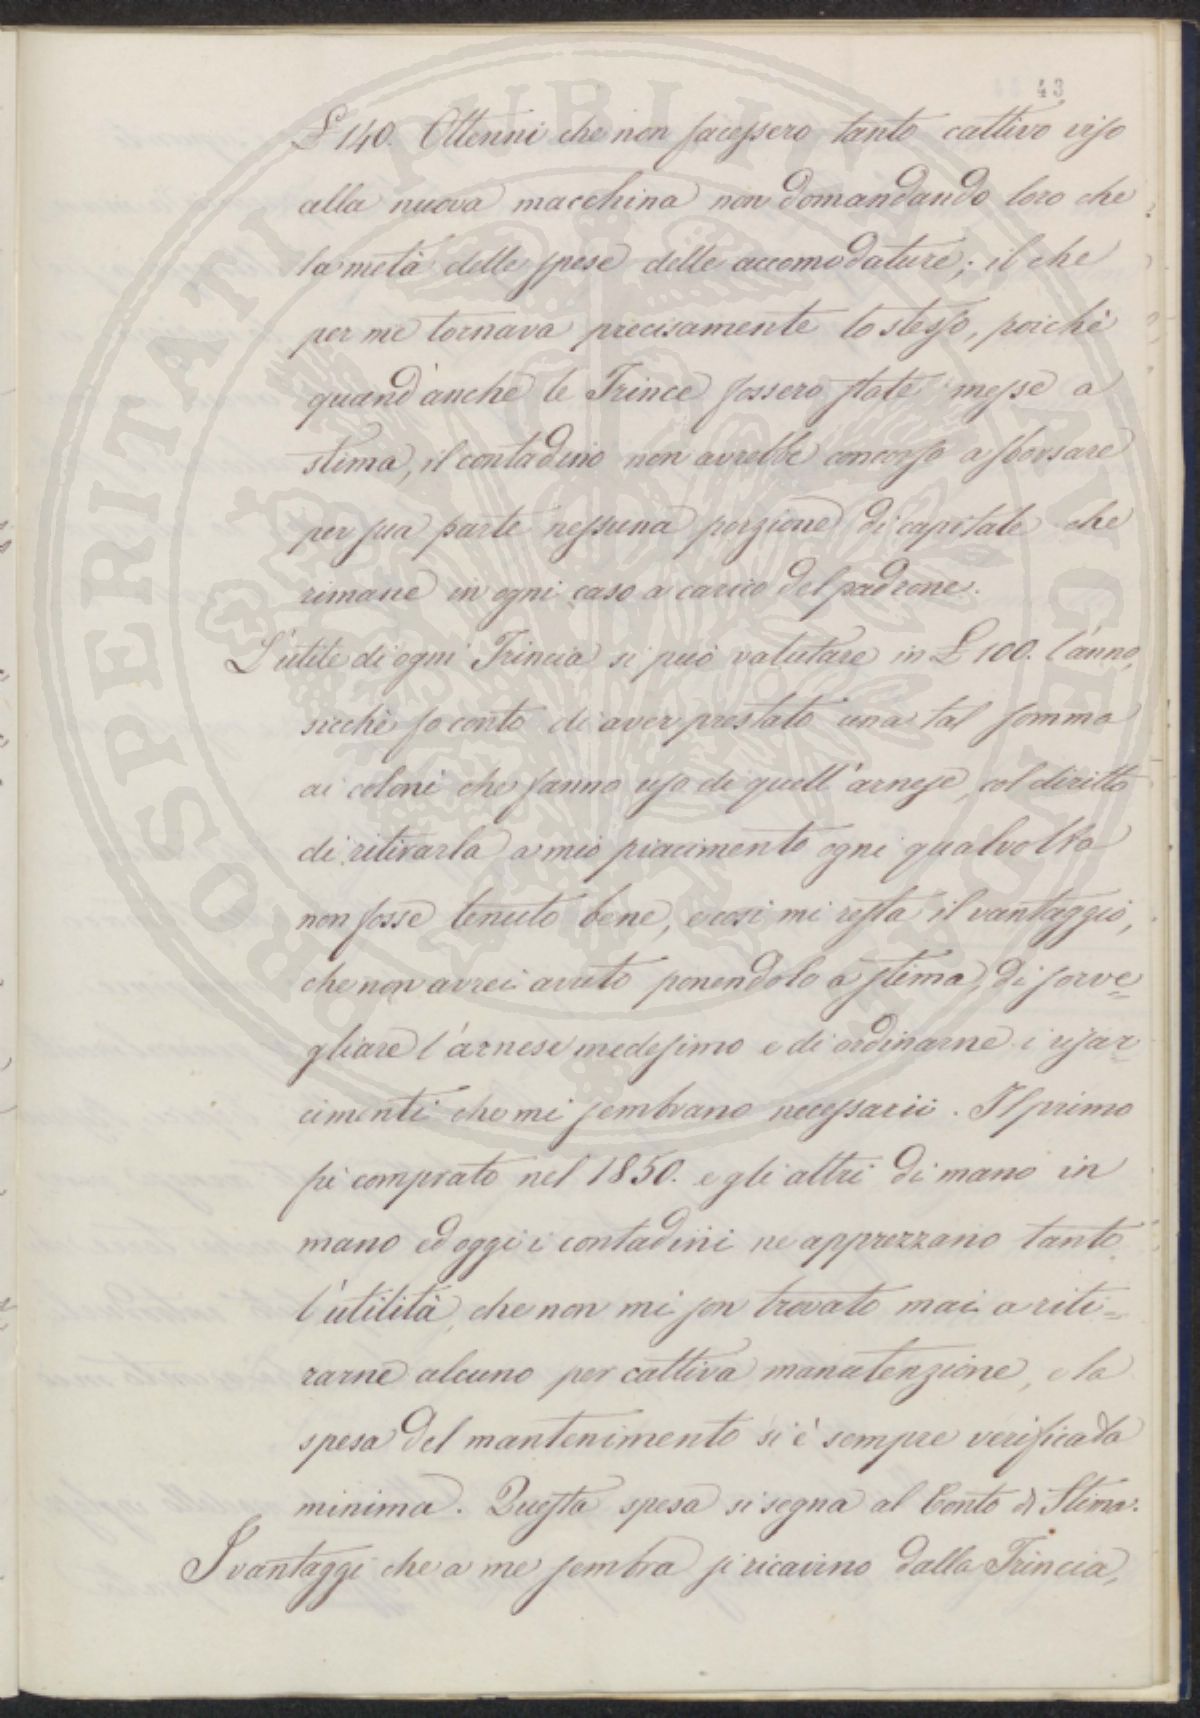 43
£ 140. Ottenni che non facessero tanto cattivo viso
alla nuova macchina non domandando loro che
la metà delle spese delle accomodature; il che
per me tornava precisamente lo stesso, poichè
quand'anche le Trince fossero state messe a
stima, il contadino non avrebbe concorso a sborsare
per sua parte nessuna porzione di capitale che
rimane in ogni caso a carico del padrone.
L'utile di ogni Trincia si può valutare in £ 100. l'anno,
sicchè fo conto di aver prestato una tal somma
ai coloni che fanno uso di quell'arnese, col diritto
di ritirarla a mio piacimento ogni qualvolta
non fosse tenuto bene, e così mi resta il vantaggio,
che non avrei avuto ponendolo a stima, di sorve=
gliare l'arnese medesimo e di ordinarne i risar=
cimenti che mi sembrano necessarii. Il primo
fù comprato nel 1850. e gli altri di mano in
mano ed oggi i contadini ne apprezzano tanto
l'utilità, che non mi son trovato mai a riti=
rarne alcuno per cattiva manutenzione, e la
spesa del mantenimento si è sempre verificata
minima. Questa spesa si segna al Conto di Stima.
I vantaggi che a me sembra si ricavino dalla Trincia,
PROSPERITATI PUBLICAE AUGENDAE